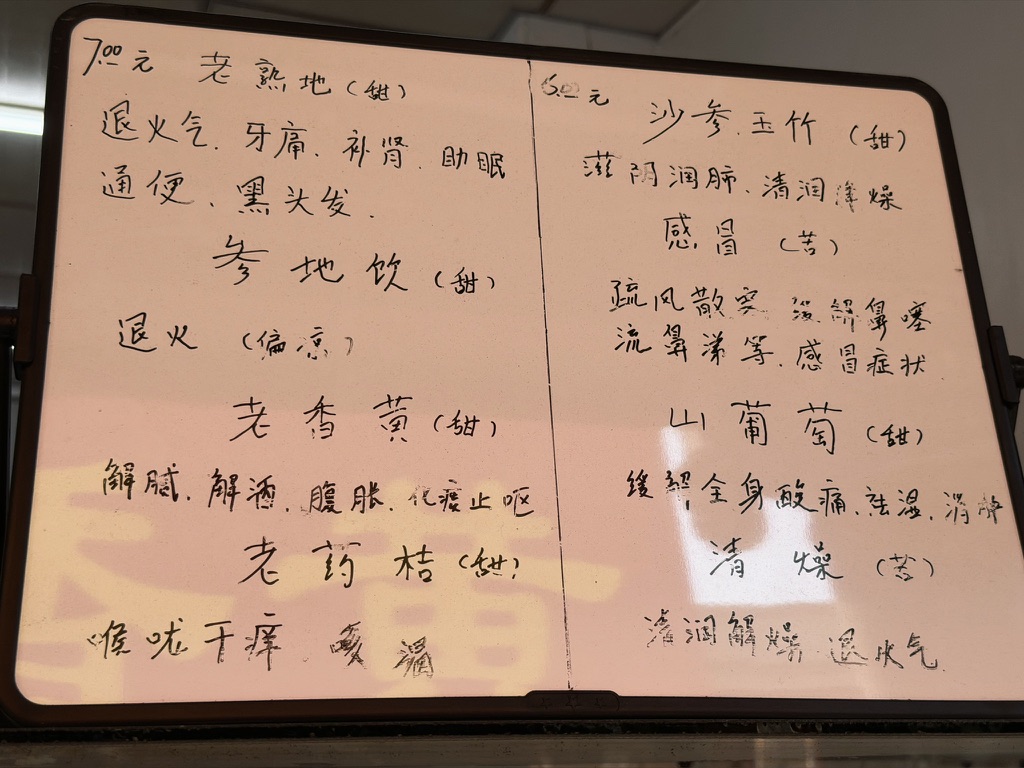 7.00元 老熟地(甜)
退火气、牙痛、补肾、助眠
通便、黑头发、
参地饮(甜)
退火(偏凉)
老香黄(甜)
解腻、解酒、腹胀、化痰止呕
老药桔(甜)
喉咙干痒、
6.00元
沙参、玉竹(甜)
滋阴润肺、清润 燥
感冒(苦)
疏风散寒 缓解鼻塞
流鼻涕等、感冒症状
山葡萄(甜)
缓解全身酸痛、祛湿、消肿
清燥(苦)
清润解燥、退火气